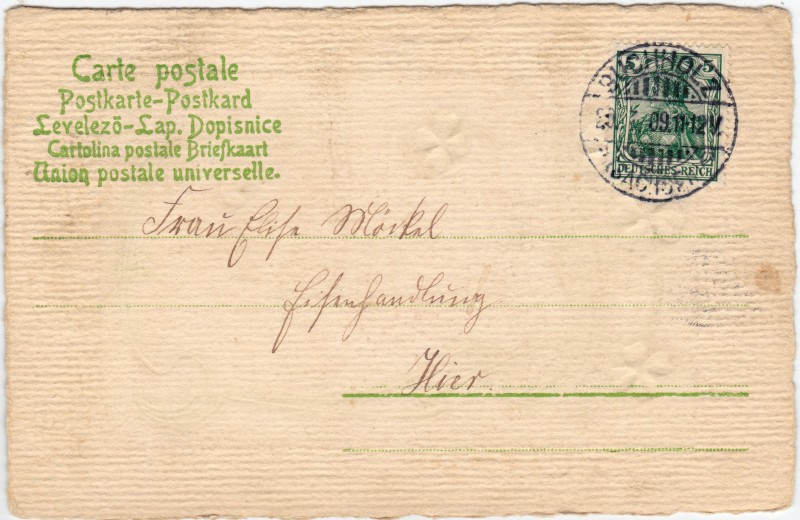 Carte postale
Postkarte-Postkard
Levelező-Lap. Dopisnice
Cartolina postale Briefkaart
Union postale universelle.
5 5
DEUTSCHES REICH
BUCHHOLZ
09.11-12V.
(SACHSEN)
Frau Elise Möckel
Eisenhandlung
Hier.